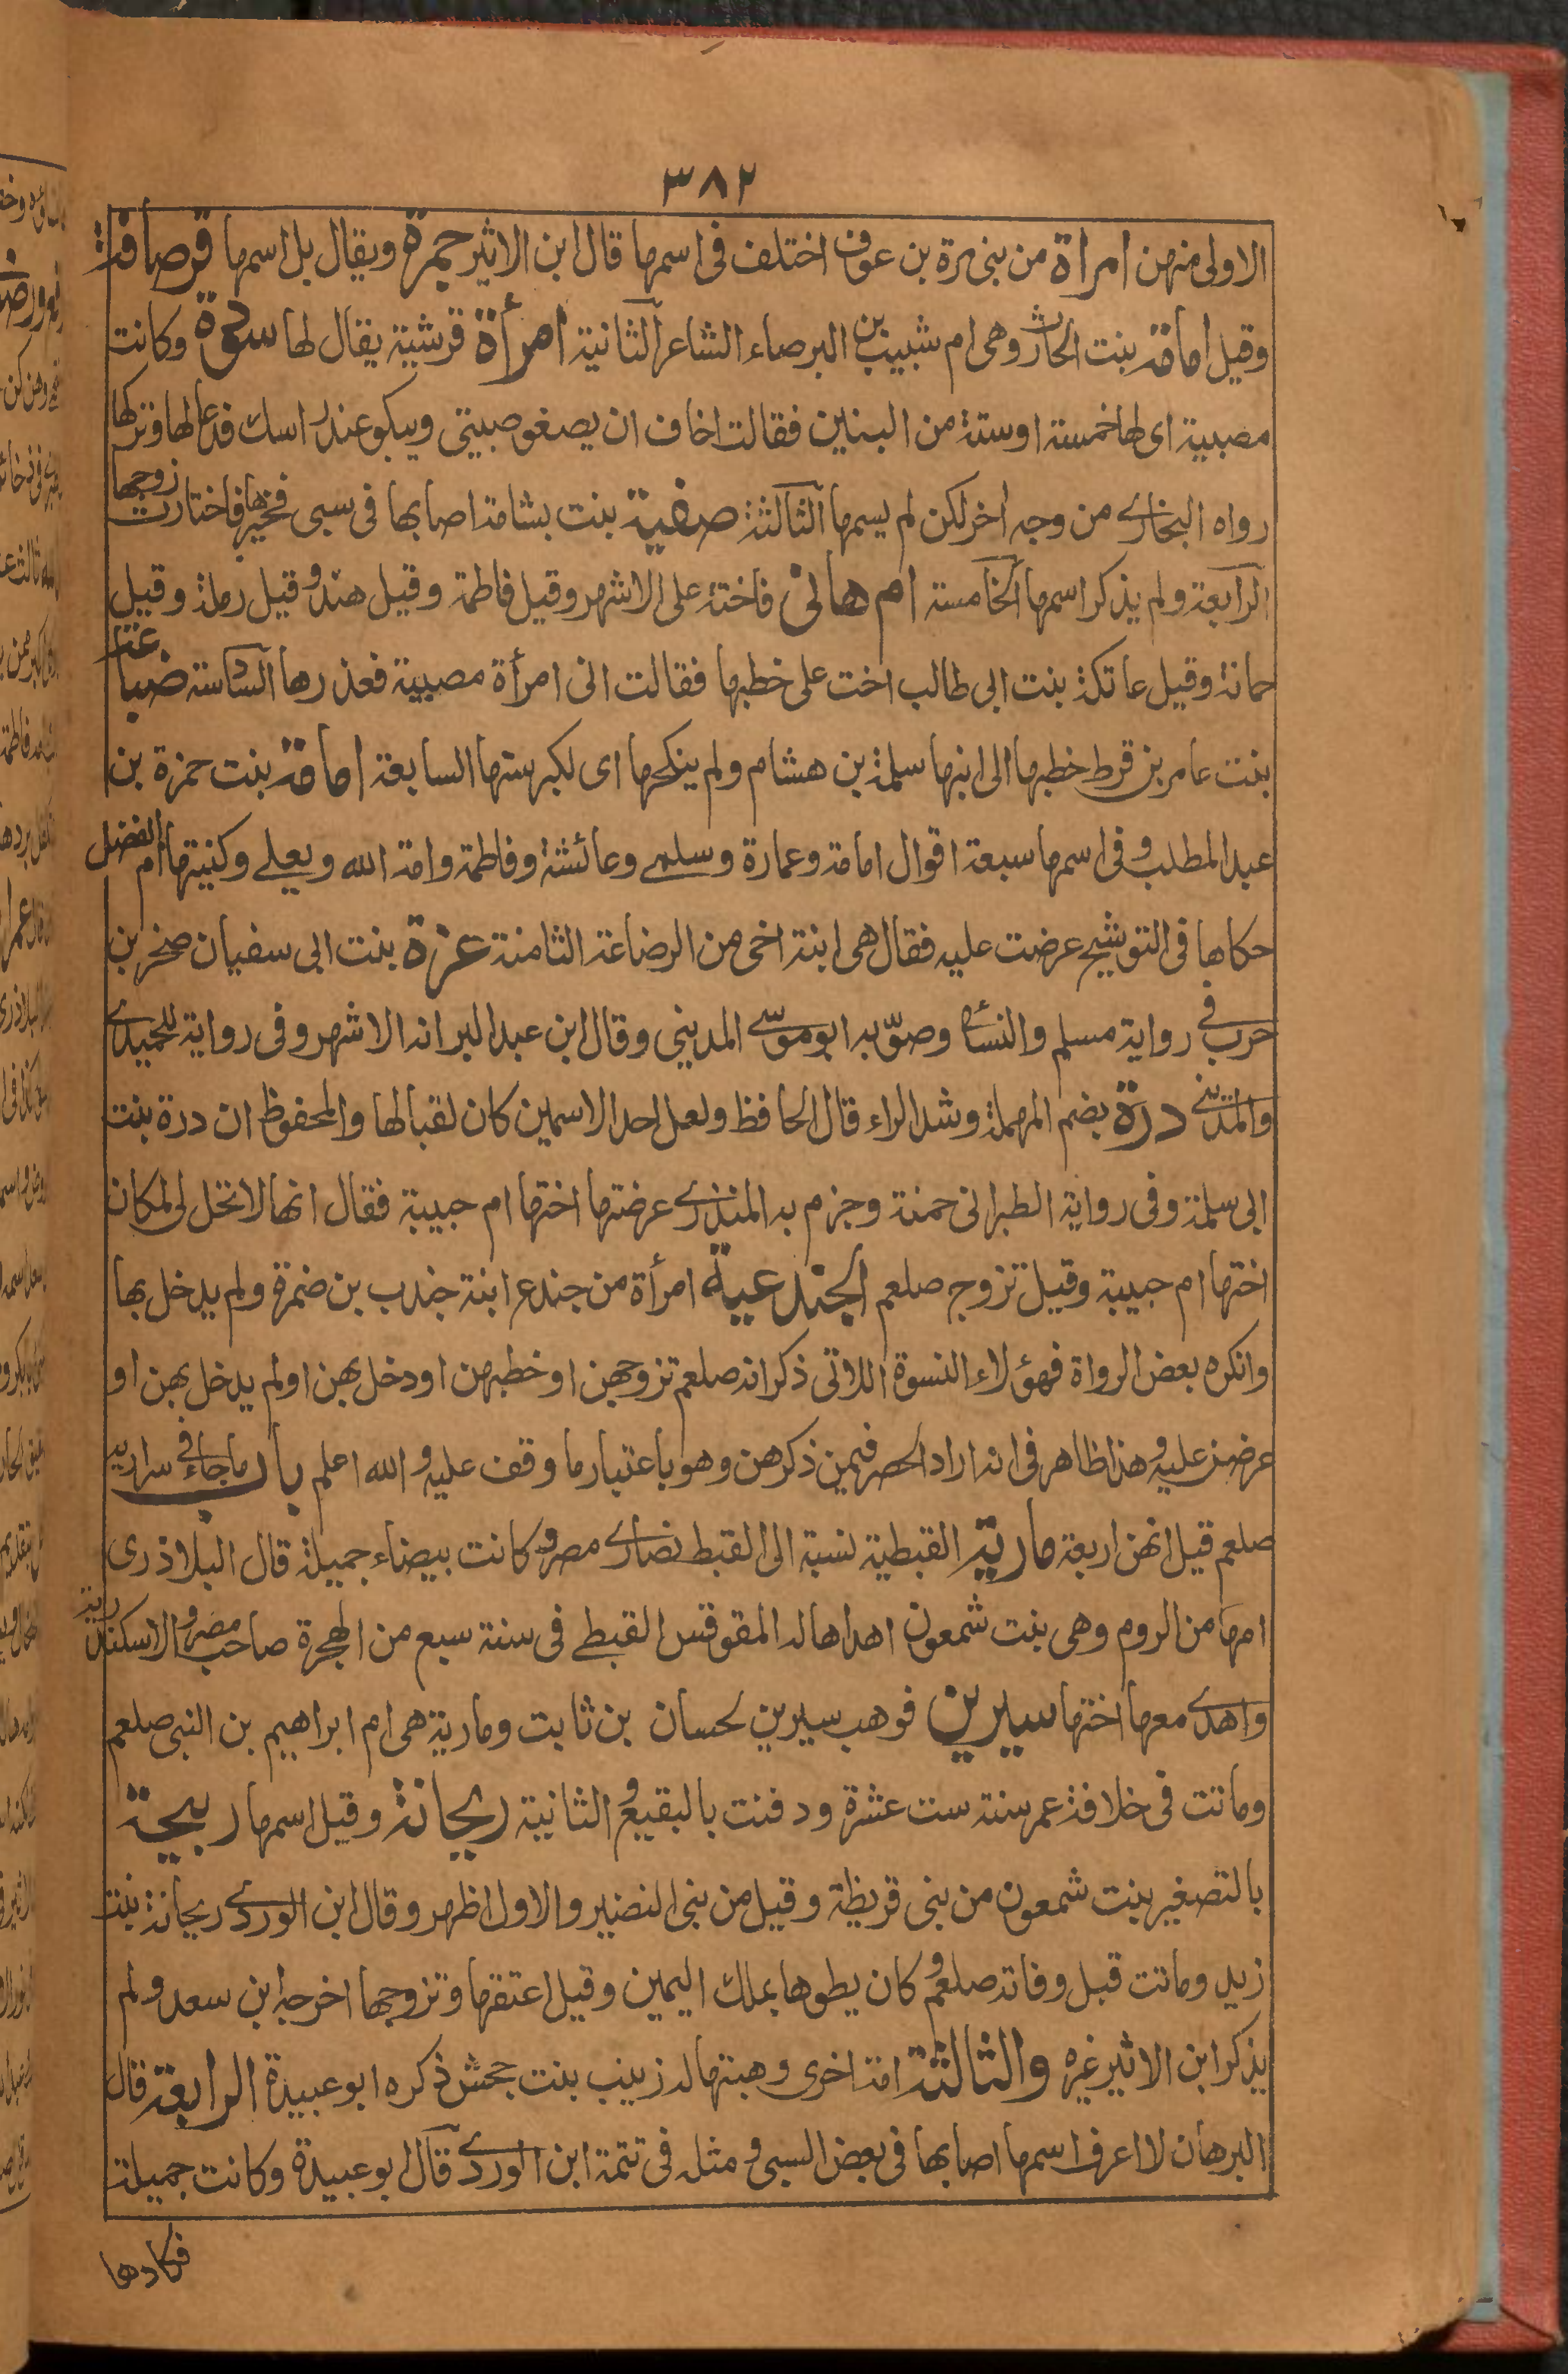 ٣٨٢
الاولى منهن امراة من بنى مرة بن عوف اختلف فى اسمها قال ابن الاثير جمرة ويقال بل اسمها قرصافة
وقيل امامة بنت الحارث وهى ام شبيب بن البرصاء الشاعر الثانية امرأة قرشية يقال لها سودة وكانت
مصبية اى لها خمسة اوستة من البنين فقالت اخاف ان يصغو صبيتى ويبكو عند راسك فدعا لها وتركها
رواه البخارے من وجه اخر لكن لم يسمها الثالثة صفية بنت بشامة اصابها فى سبى فخيرها فاختارت زوجها
الرابعة ولم يذكر اسمها الخامسة ام هانى فاختة على الاشهر وقيل فاطمة وقيل هند وقيل رملة وقيل
حمانة وقيل عاتكة بنت ابى طالب اخت على خطبها فقالت انى امرأة مصبية فعذرها السادسة ضباعة
بنت عامر بن قرط خطبها الى ابنها سلمة بن هشام ولم ينكحها اى لكبر سنها السابعة امامة بنت حمزة بن
عبد المطلب وفى اسمها سبعة اقوال امامة وعمارة وسلمے وعائشة وفاطمة وامة الله ويعلے وكنيتها ام الفضل
حكاها فى التوشيح عرضت عليه فقال هى ابنة اخى من الرضاعة الثامنة عزة بنت ابى سفيان صخر بن
حرب فى رواية مسلم والنسائ وصوّبه ابو موسے المدينى وقال ابن عبد البر انه الاشهر وفى رواية للحميدے
والمدينے درة بضم المهملة وشد الراء قال الحافظ ولعل احد الاسمين كان لقبا لها والمحفوظ ان درة بنت
ابى سلمة وفى رواية الطبرانى حمنة وجزم به المنذرے عرضتها اختها ام حبيبة فقال انها لا تحل لى لمكان
اختها ام حبيبة وقيل تزوج صلعم الجندعية امرأة من جندع ابنة جندب بن ضمرة ولم يدخل بها
وانكره بعض الرواة فهؤلاء النسوة اللاتى ذكر انه صلعم تزوجهن او خطبهن او دخل بهن اولم يدخل بهن او
عرضن عليه وهذا ظاهر فى انه اراد الحصر فيمن ذكرهن وهو باعتبار ما وقف عليه والله اعلم باب ما جاء فى سراريه
صلعم قيل انهن اربعة مارية القبطية نسبة الى القبط نصارے مصر وكانت بيضاء جميلة قال البلاذرى
امها من الروم وهى بنت شمعون اهداها له المقوقس القبطے فى سنة سبع من الهجرة صاحب مصر والاسكندرية
واهدے معها اختها سيرين فوهب سيرين لحسان بن ثابت ومارية هى ام ابراهيم بن النبى صلعم
وماتت فى خلافة عمر سنة ست عشرة ودفنت بالبقيع و الثانية ريحانة وقيل اسمها ربيحة
بالتصغير بنت شمعون من بنى قريظة وقيل من بنى النضير والاول اظهر وقال ابن الوردے ريحانة بنت
زيد وماتت قبل وفاته صلعم وكان يطوها بملك اليمين وقيل اعتقها وتزوجها اخرجه ابن سعد ولم
يذكر ابن الاثير غيره والثالثة امة اخرى وهبتها له زينب بنت جحش ذكره ابو عبيدة الرابعة قال
البرهان لا اعرف اسمها اصابها فى بعض السبى ومثله فى تتمة ابن الوردے قال ابو عبيدة وكانت جميلة
فكادها